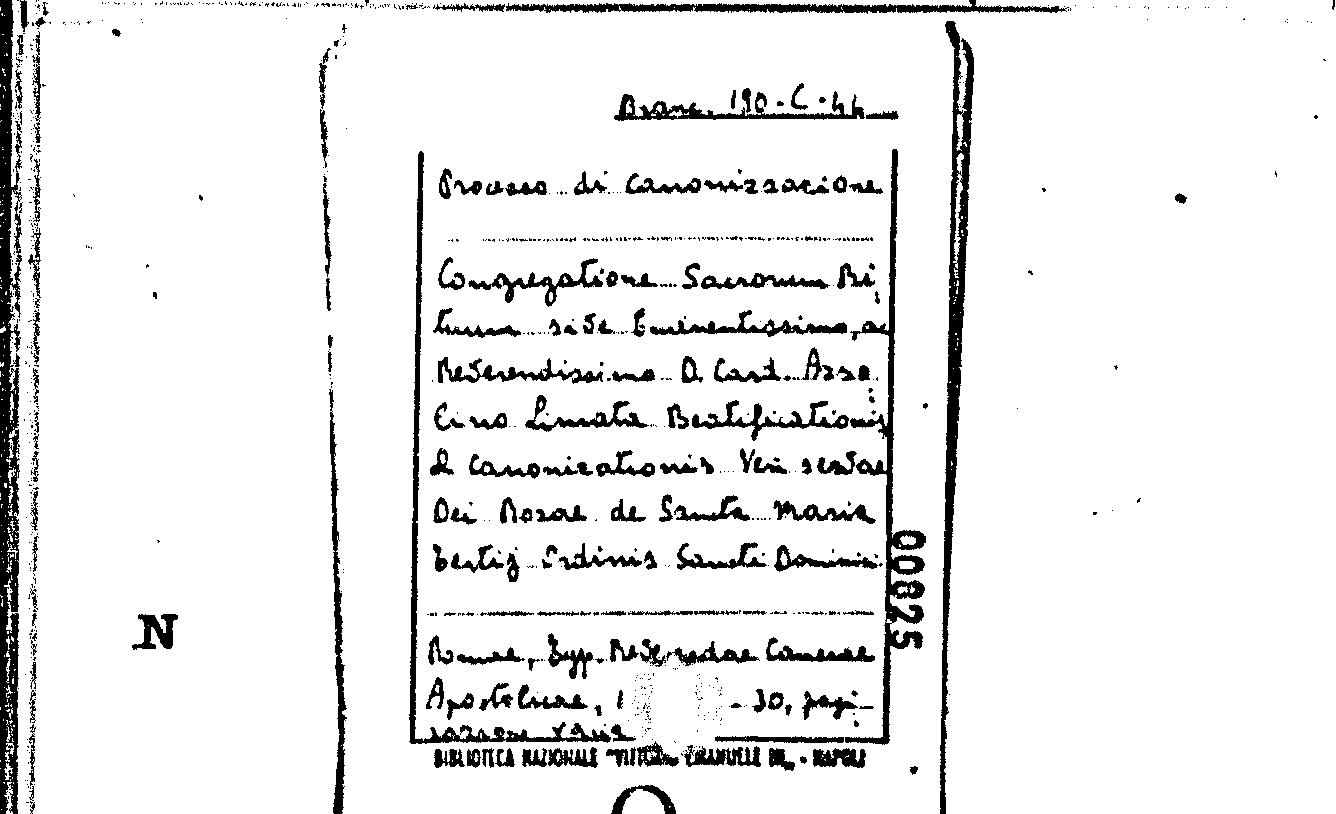 Branc. 190.C.44
Processo di Canonizzazione
Congregatione Sacrorum Ri
tuum sive Eminentissimo, ac
Reverendissimo D. Card. Azzo
lino Limata Beatificationis
& Canonizationis Ven. servae
Dei Rosae de Santa Maria
Tertij Ordinis Sancti Dominici
Romae, Typ. Reverendae Camerae
Apostolicae, 1 - 30, pagi-
BIBLIOTECA NAZIONALE "VITTORIO EMANUELE III" - NAPOLI
00825
N